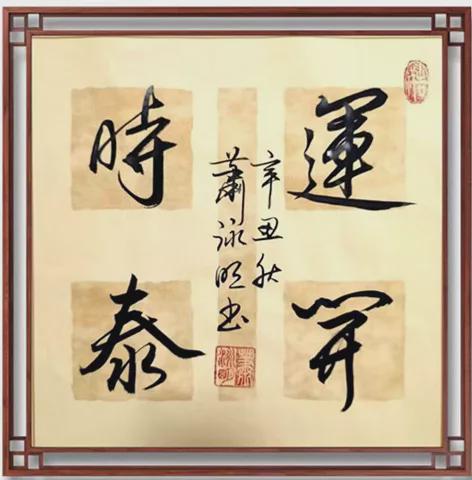 運開
時泰
辛丑秋
蕭詠明書